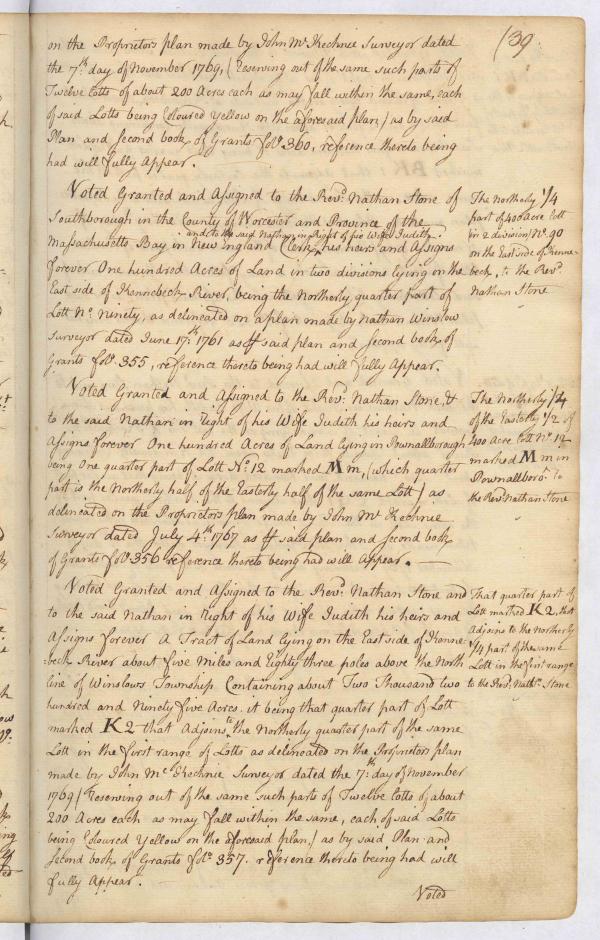 139
on the Proprietors plan made by John McKechnie Surveyor dated
the 7th day of November 1769, (reserving out of the same such parts of
Twelve Lotts of about 200 Acres each as may fall within the same, each
of said Lotts being Coloured Yellow on the aforesaid plan,) as by said
Plan and Second book of Grants folo. 360, reference thereto being
had will fully Appear.
Voted Granted and Assigned to the Revd. Nathan Stone of
Southborough in the County of Worcester and Province of the
and to the said Nathan in Right of his Wife Judith
Massachusetts Bay in New England Clerk his heirs and Assigns
forever One hundred Acres of Land in two divisions lying on the
East side of Kennebeck River, being the Northerly quarter part of
Lott No. ninety, as delineated on a plan made by Nathan Winslow
Surveyor dated June 17th. 1761 as ℔ said plan and Second book of
Grants folo. 355, reference thereto being had will fully Appear.
The Northerly 1/4
part of 400 acre Lott
in 2 divisions No. 90
on the East side of Kenne-
beck, to the Revd.
Nathan Stone
Voted Granted and Assigned to the Revd. Nathan Stone, &
to the said Nathan in right of his Wife Judith his heirs and
Assigns forever One hundred Acres of Land lying in Pownallborough
being One quarter part of Lott No. 12 marked M m, (which quarter
part is the Northerly half of the Easterly half of the same Lott) as
delineated on the Proprietors plan made by John Mc Kechnie
Surveyor dated July 4th. 1767 as ℔ said plan and Second book
of Grants folo. 356 reference thereto being had will Appear. —
The Northerly 1/4
of the Easterly 1/2 of
400 acre Lott No. 12
marked M m in
Pownallboro. to
the Revd. Nathan Stone
Voted Granted and Assigned to the Revd. Nathan Stone and
to the said Nathan in right of his Wife Judith his heirs and
Assigns forever A Tract of Land lying on the East side of Kenne-
beck River about five Miles and Eighty three poles above the North
line of Winslows Township Containing about Two Thousand two
hundred and Ninety five Acres. it being that quarter part of Lott
marked K 2 that Adjoins to the Northerly quarter part of the same
Lott in the first range of Lotts as delineated on the Proprietors plan
made by John Mc Kechnie Surveyor dated the 7th. day of November
1769 (reserving out of the same such parts of Twelve Lotts of about
200 Acres each as may fall within the same, each of said Lotts
being Coloured Yellow on the aforesaid plan,) as by said Plan and
Second book of Grants folo. 357. reference thereto being had will
fully Appear. —
That quarter part of
Lott marked K 2, that
Adjoins to the Northerly
1/4 part of the same
Lott in the first range
to the Revd. Nathn. Stone
Voted